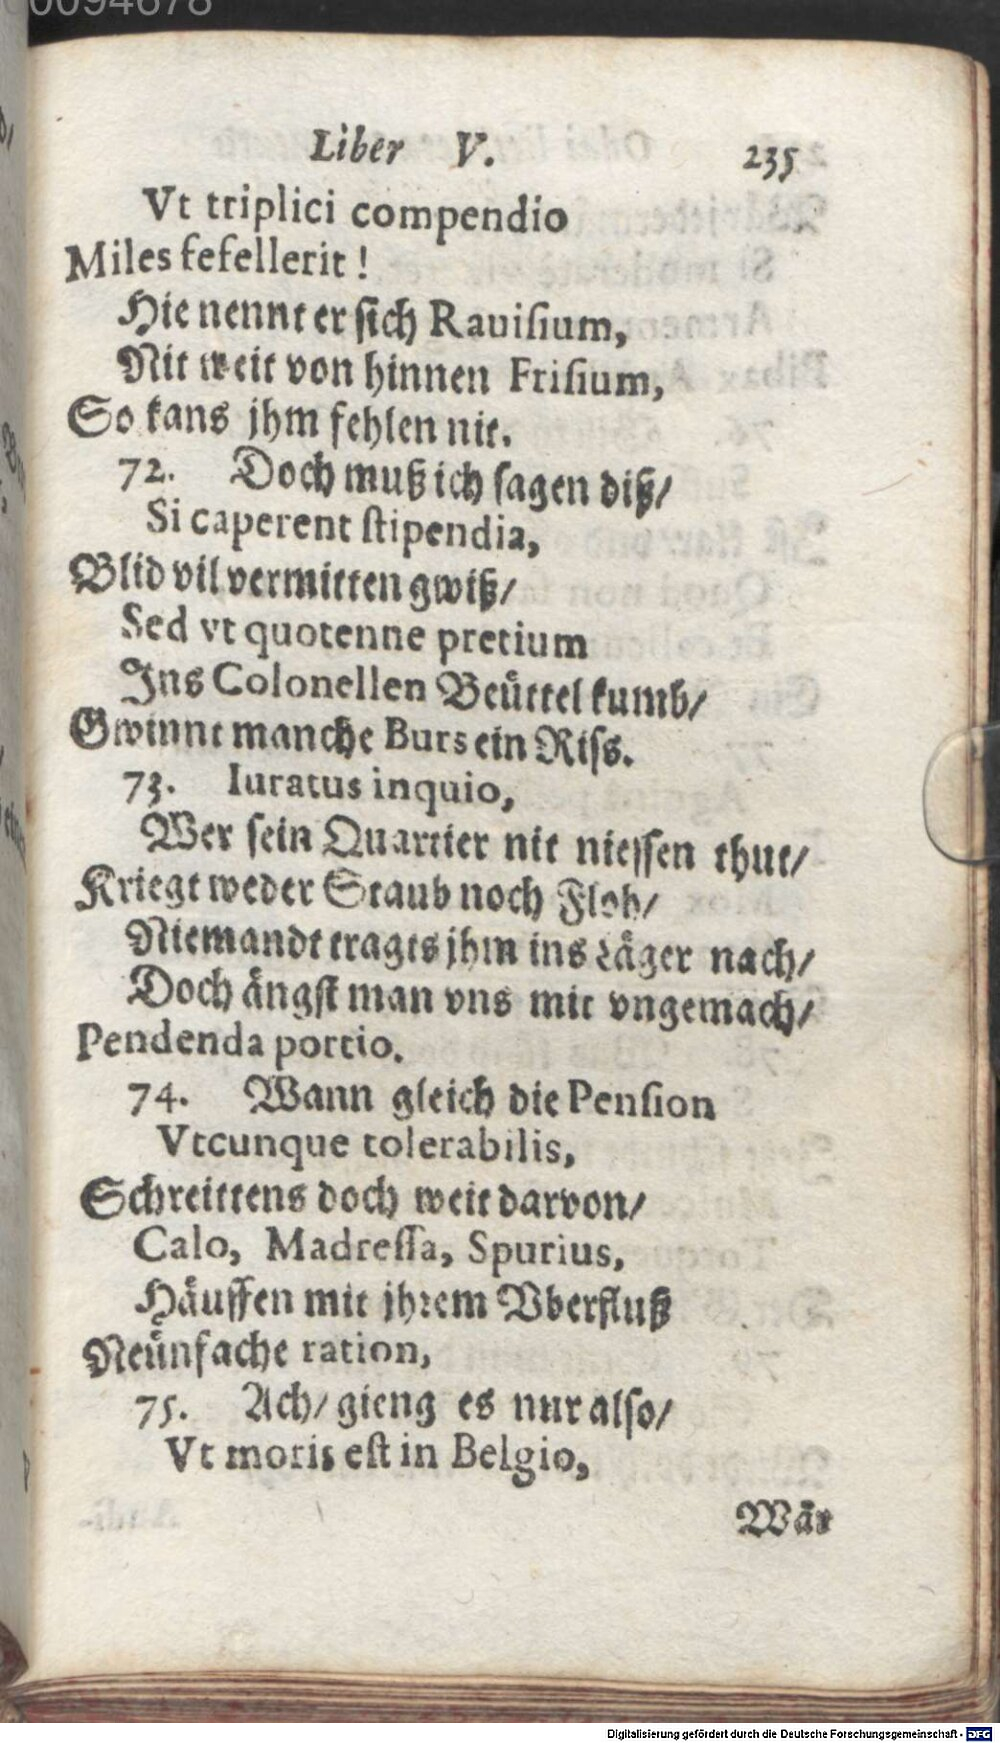 0094678
Liber V. 235
Vt triplici compendio
Miles fefellerit!
Hie nennt er sich Rauisium,
Nit weit von hinnen Frisium,
So kans jhm fehlen nit.
72. Doch muß ich sagen diß/
Si caperent stipendia,
Blid vil vermitten gwiß/
Sed vt quotenne pretium
Ins Colonellen Beüttel kumb/
Gwinnt manche Burs ein Riss.
73. Iuratus inquio,
Wer sein Quartier nit niessen thut/
Kriegt weder Staub noch Floh/
Niemandt tragts jhm ins Läger nach/
Doch ängst man vns mit vngemach/
Pendenda portio.
74. Wann gleich die Pension
Vtcunque tolerabilis,
Schreittens doch weit darvon/
Calo, Madressa, Spurius,
Häuffen mit jhrem Vberfluß
Neünfache ration,
75. Ach/ gieng es nur also/
Vt moris est in Belgio,
Wär
Digitalisierung gefördert durch die Deutsche Forschungsgemeinschaft - DFG